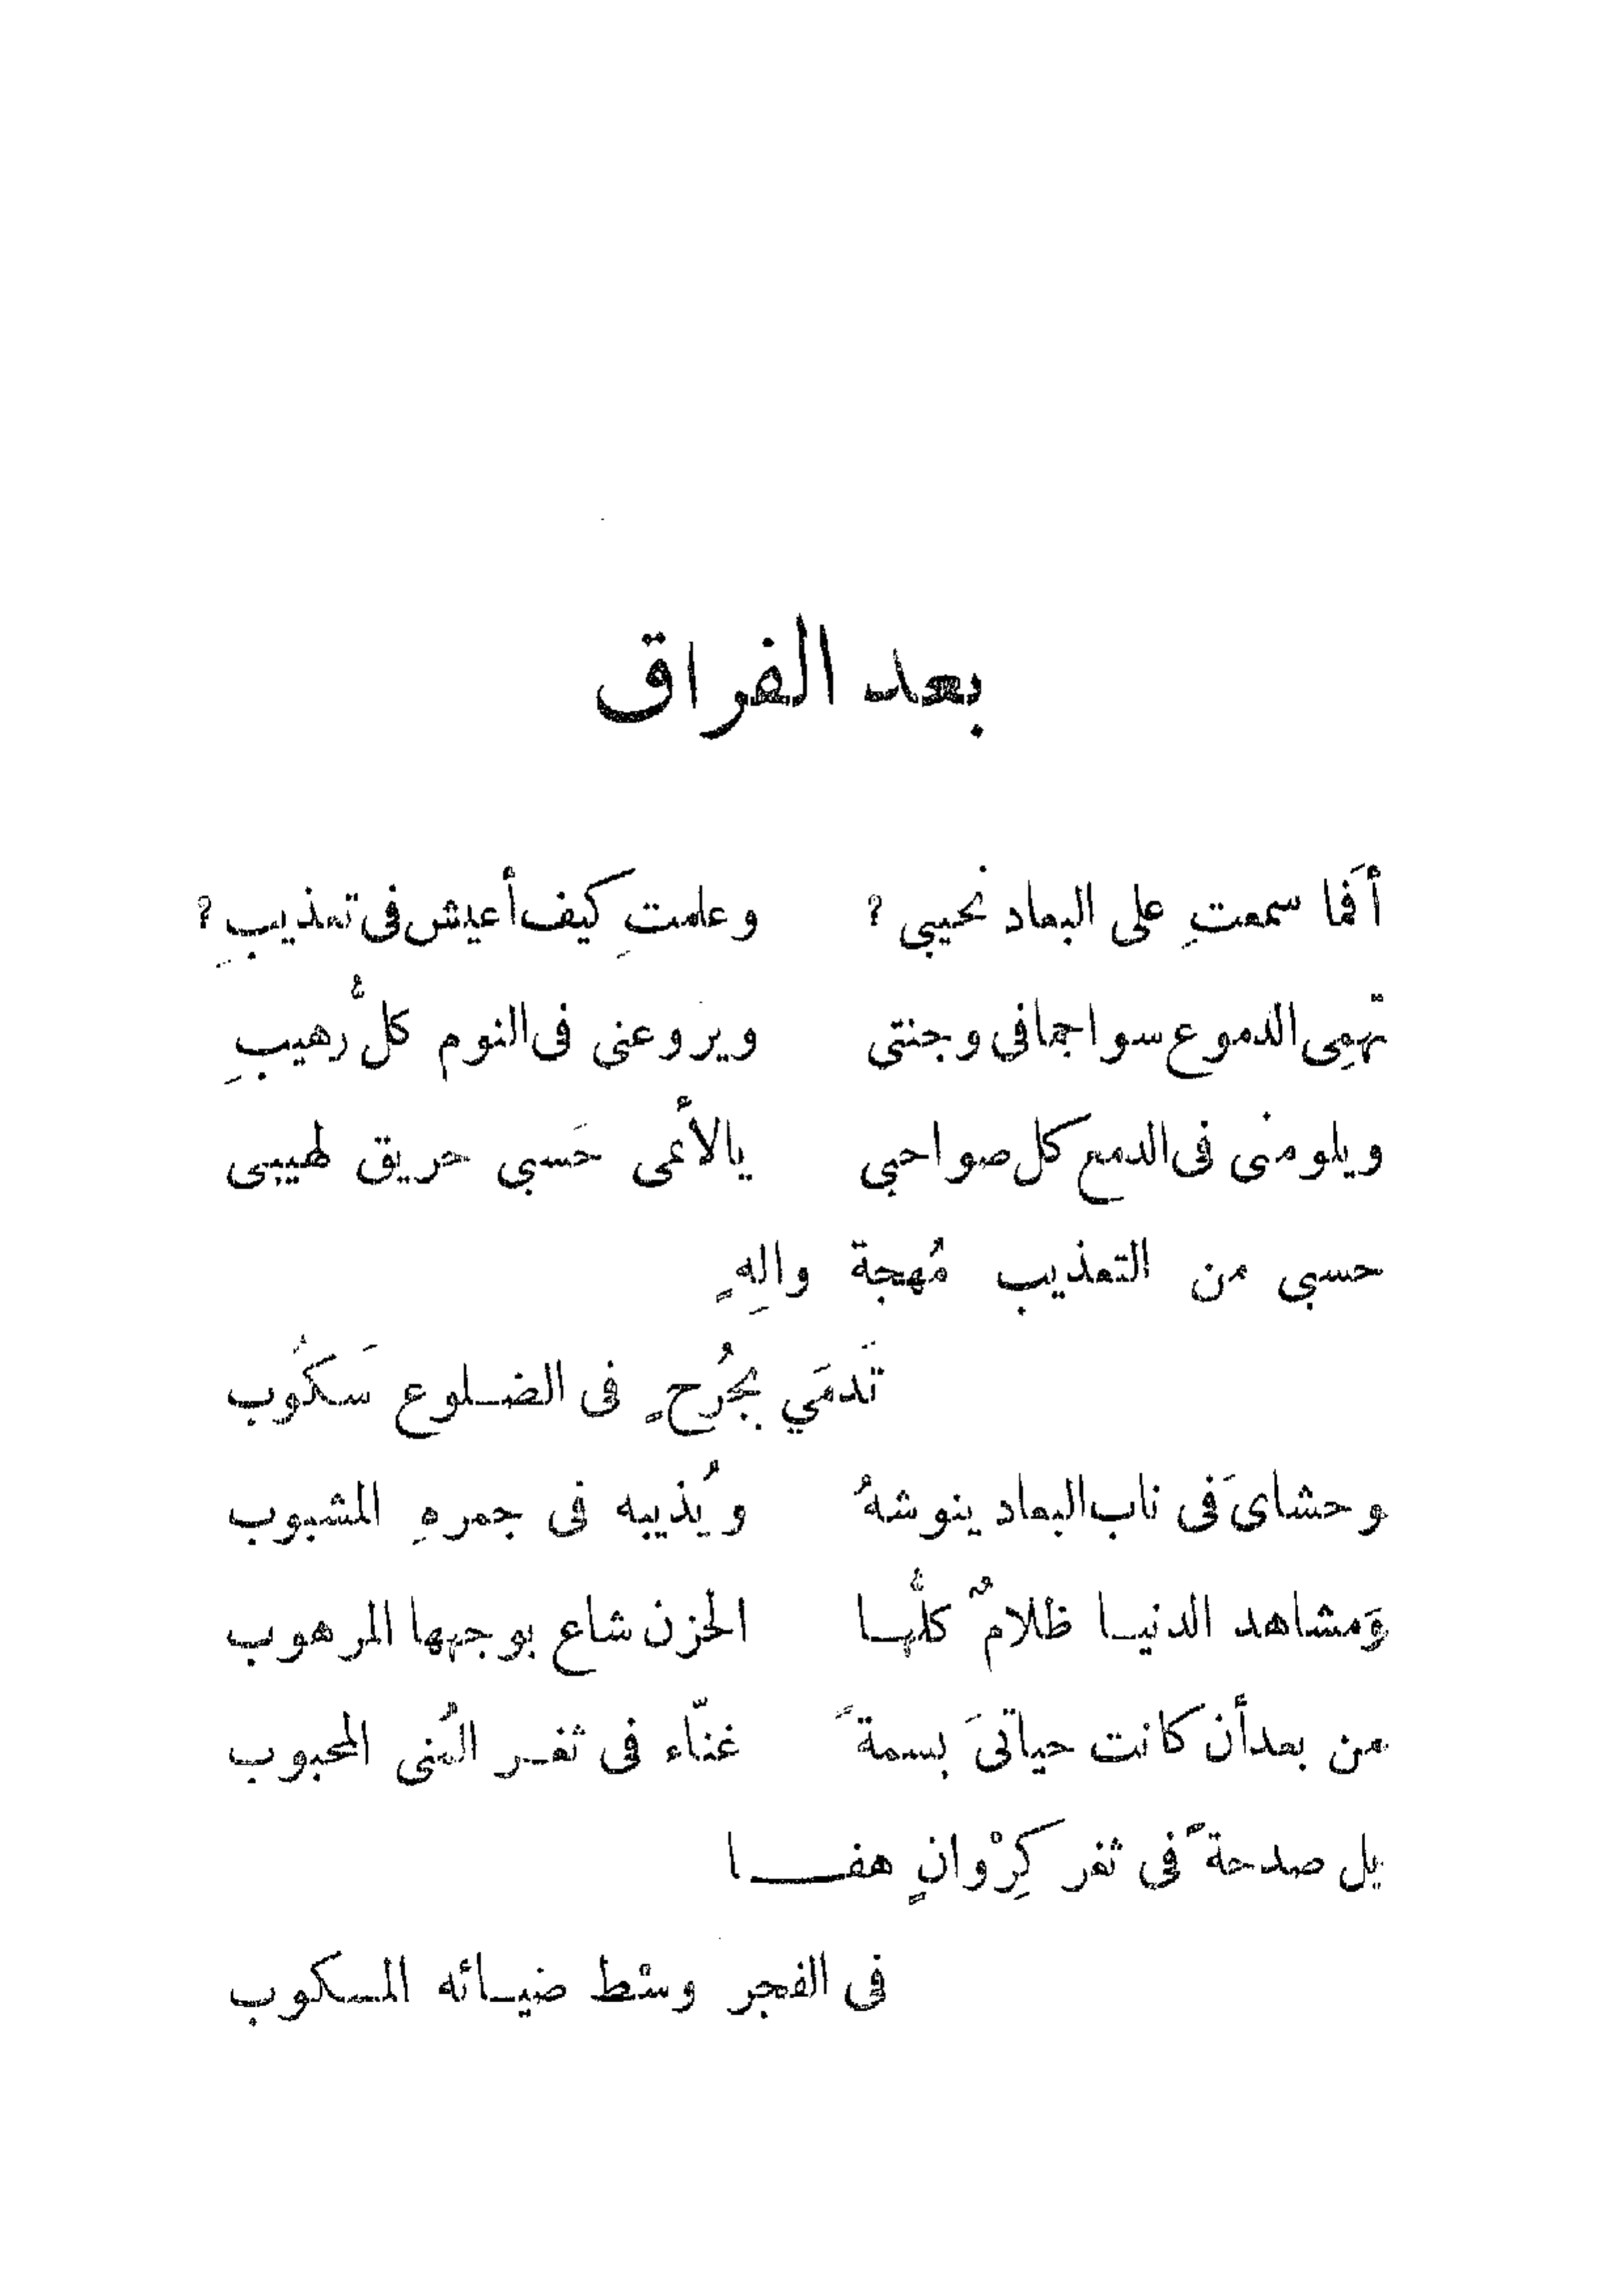 بعد الفراق
أَفما سمعتِ على البعاد نحيبي ؟ وعلمتِ كيف أعيش فى تعذيبِ ؟
تهمِى الدموع سواجما فى وجنتى ويروعنى فى النوم كلُّ رهيبِ
ويلومنى فى الدمع كل صواحبي يا لأعمى حَسبي حريق لهيبى
حسبي من التعذيب مُهجة والِهٍ
تَدمَي بجُرحٍ فى الضلوع سَكُوب
وحشاىَ فى ناب البعاد ينوشهُ ويُذيبه فى جمرهِ المشبوب
وَمشاهد الدنيا ظلامٌ كلُّها الحزن شاع بوجهها المرهوب
من بعد أن كانت حياتىَ بسمةً غنّاء فى ثغر المُنى المحبوب
بل صدحةً فى ثغر كِرْوانٍ هفا
فى الفجر وسْط ضيائه المسكوب